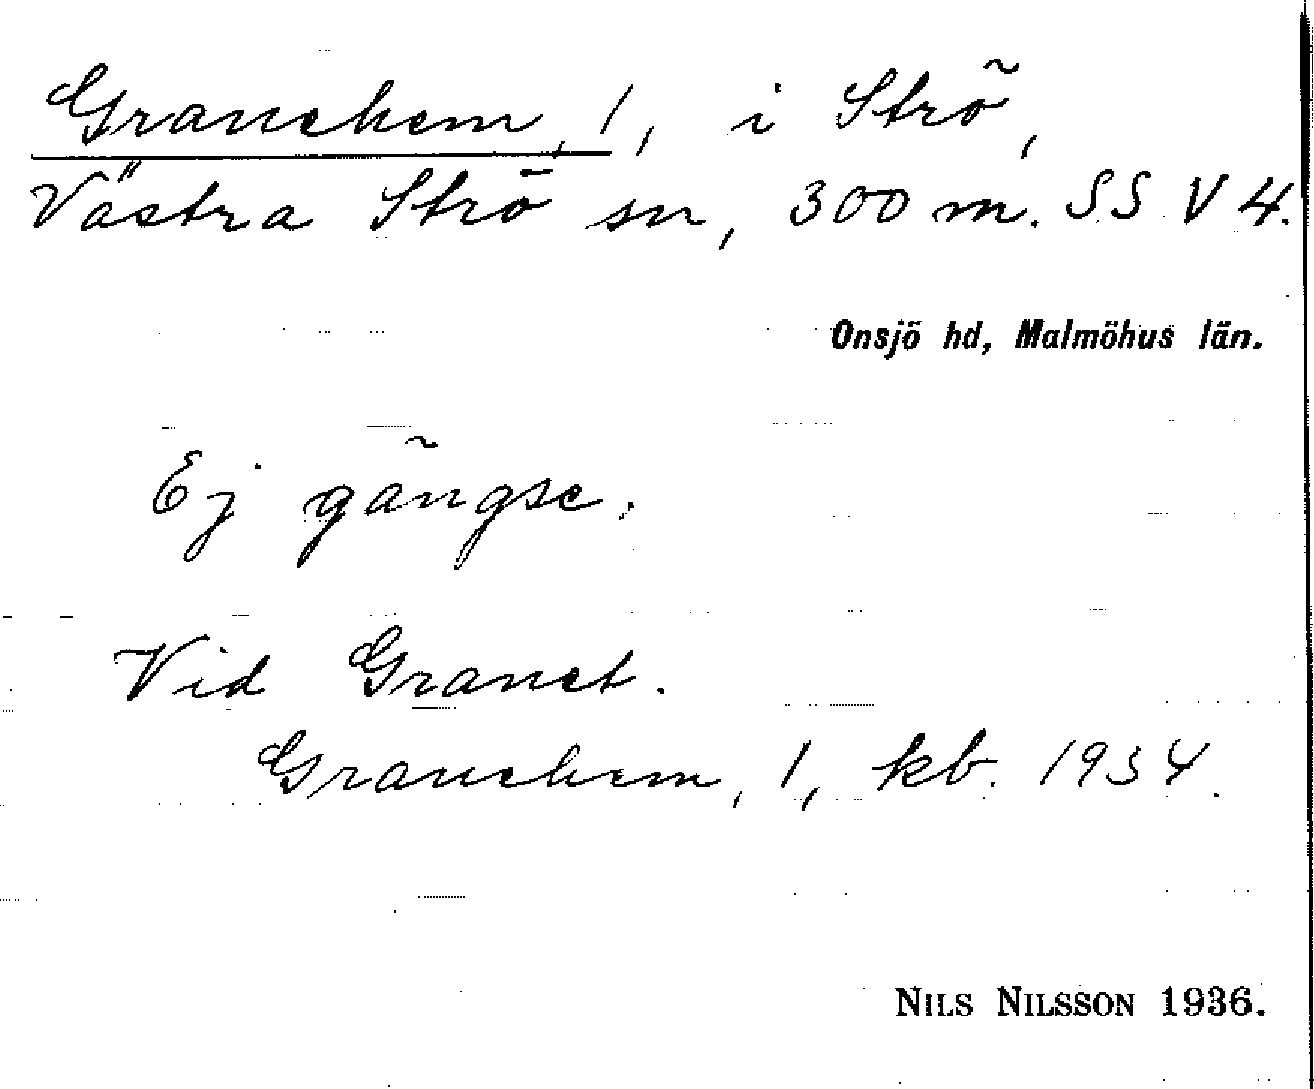 Granehem, 1, i Strö,
Västra Strö sn, 300 m. SSV 4.
Onsjö hd, Malmöhus län.
Ej gängse.
Vid Granet.
Granehem, 1, kb. 1934.
NILS NILSSON 1936.